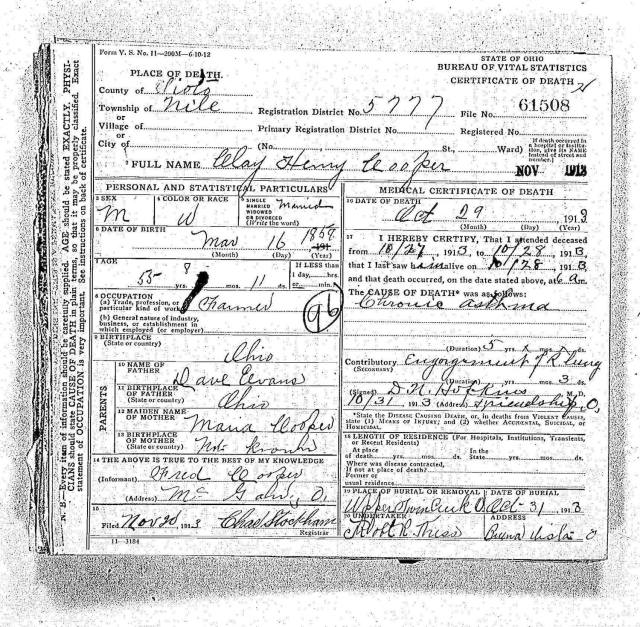 Form V. S. No. 11—200M—6-10-12
STATE OF OHIO
BUREAU OF VITAL STATISTICS
CERTIFICATE OF DEATH
PLACE OF DEATH.
County of Scioto
Township of Nile
or
Village of
or
City of
Registration District No. 5777
File No. 61508
Primary Registration District No.
Registered No.
(No. St., Ward)
If death occurred in a hospital or institution, give its NAME instead of street and number.
NOV 1913
FULL NAME Clay Henry Cooper
PERSONAL AND STATISTICAL PARTICULARS
3 SEX
M
4 COLOR OR RACE
W
5 SINGLE
MARRIED
WIDOWED
OR DIVORCED
(Write the word)
Married
6 DATE OF BIRTH
Mar 16
(Month) (Day) (Year)
7 AGE
55 yrs. 8 mos. 11 ds.
IF LESS than
1 day, hrs.
or min.?
8 OCCUPATION
(a) Trade, profession, or
particular kind of work Farmer
(b) General nature of industry,
business, or establishment in
which employed (or employer)
96
9 BIRTHPLACE
(State or country)
Ohio
PARENTS
10 NAME OF
FATHER
Dave Evans
11 BIRTHPLACE
OF FATHER
(State or country)
Ohio
12 MAIDEN NAME
OF MOTHER
Maria Cooper
13 BIRTHPLACE
OF MOTHER
(State or country)
Not Known
14 THE ABOVE IS TRUE TO THE BEST OF MY KNOWLEDGE
(Informant) Fred Cooper
(Address) McGaw, O.
15
Filed Nov 20, 1913 Chas Stockham
Registrar
11—3184
MEDICAL CERTIFICATE OF DEATH
16 DATE OF DEATH
Oct 29, 1913
(Month) (Day) (Year)
17 I HEREBY CERTIFY, That I attended deceased
from 10/27, 1913, to 10/28, 1913
that I last saw him alive on 10/28, 1913
and that death occurred, on the date stated above, at 2 a m.
The CAUSE OF DEATH* was as follows:
Chronic asthma
(Duration) 5 yrs. mos. ds.
Contributory Engorgement of R. Lung
(SECONDARY)
(Duration) yrs. mos. 3 ds.
(Signed) M. D.
10/31, 1913 (Address) O.
*State the DISEASE CAUSING DEATH, or, in deaths from VIOLENT CAUSES, state (1) MEANS OF INJURY; and (2) whether ACCIDENTAL, SUICIDAL, or HOMICIDAL.
18 LENGTH OF RESIDENCE (For Hospitals, Institutions, Transients, or Recent Residents)
At place
of death yrs. mos. ds.
In the
State yrs. mos. ds.
Where was disease contracted,
if not at place of death?
Former or
usual residence
19 PLACE OF BURIAL OR REMOVAL
Upper Twin Creek O
DATE OF BURIAL
Oct 31, 1913
20 UNDERTAKER
ADDRESS
Buena Vista O
N. B.—Every item of information should be carefully supplied. AGE should be stated EXACTLY. PHYSICIANS should state CAUSE OF DEATH in plain terms, so that it may be properly classified. Exact statement of OCCUPATION is very important. See instructions on back of certificate.